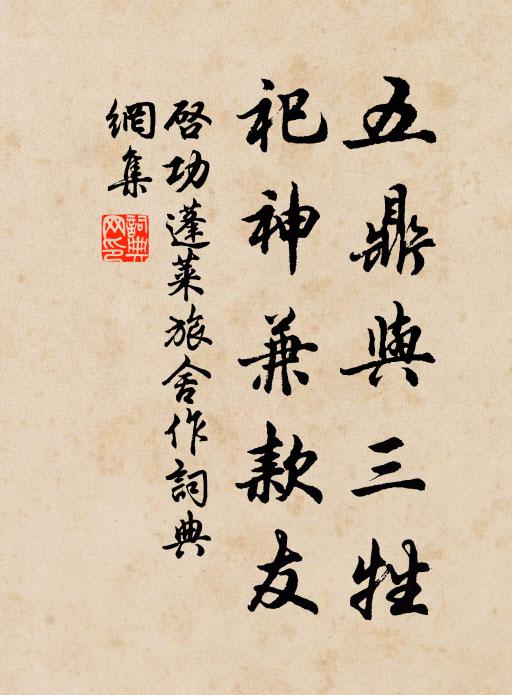 五鼎與三牲
祀神兼款友
啓功蓬萊旅舍作詞典
網集
詞典
网印